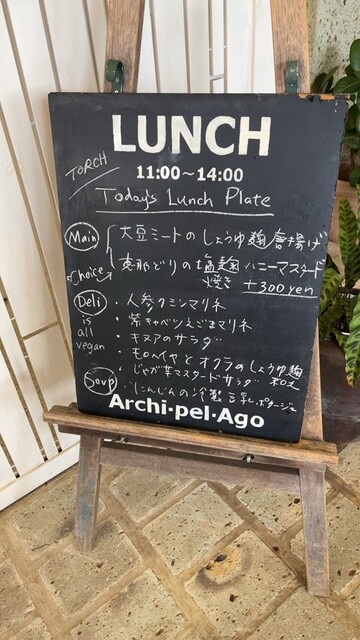 LUNCH
TORCH
11:00~14:00
Today's Lunch Plate
Main
大豆ミートのしょうゆ麹唐揚げ
Choice
恵那どりの塩麹焼き ハニーマスタード
+300yen
Deli is all vegan
・人参クミンマリネ
・紫キャベツえごまマリネ
・キヌアのサラダ
・モロヘイヤとオクラのしょうゆ麹和え
・じゃが芋マスタードサラダ
Soup
・にんじんの冷製豆乳ポタージュ
Archi·pel·Ago